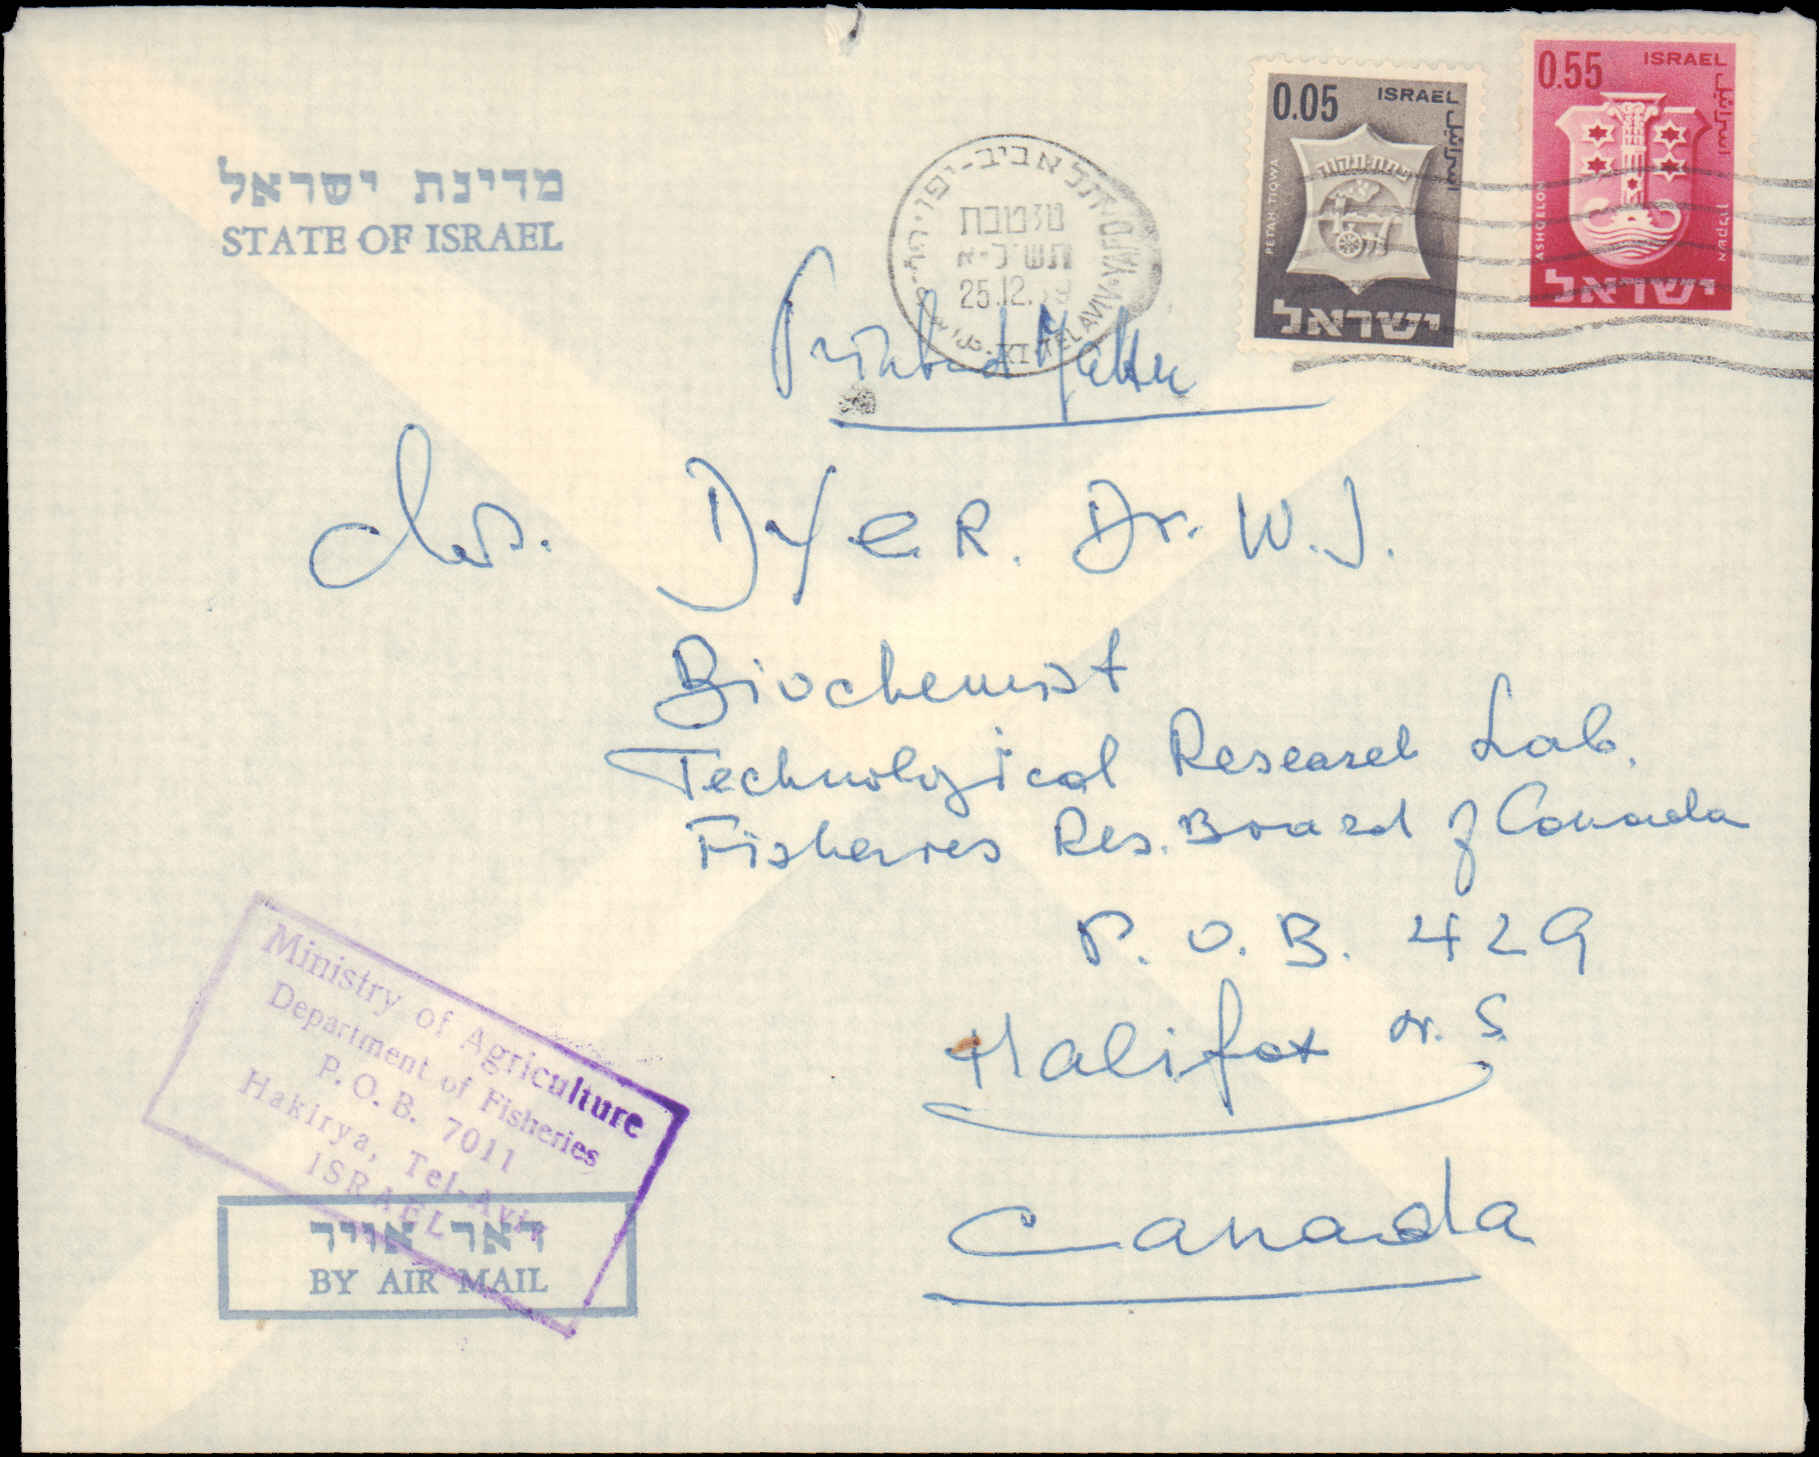 מדינת ישראל
STATE OF ISRAEL
תל אביב-יפו
25.12.
TEL AVIV-YAFO
0.05 ISRAEL
اسرائيل
PETAH TIQWA
פתח-תקוה
ישראל
0.55 ISRAEL
اسرائيل
ASHQELON
אשקלון
ישראל
Printed Matter
DYER. Dr. W.J.
Biochemist
Technological Research Lab.
Fisheries Res. Board of Canada
P.O.B. 429
Halifax N.S
Canada
Ministry of Agriculture
Department of Fisheries
P.O.B. 7011
Hakirya, Tel-Aviv
ISRAEL
דאר אויר
BY AIR MAIL